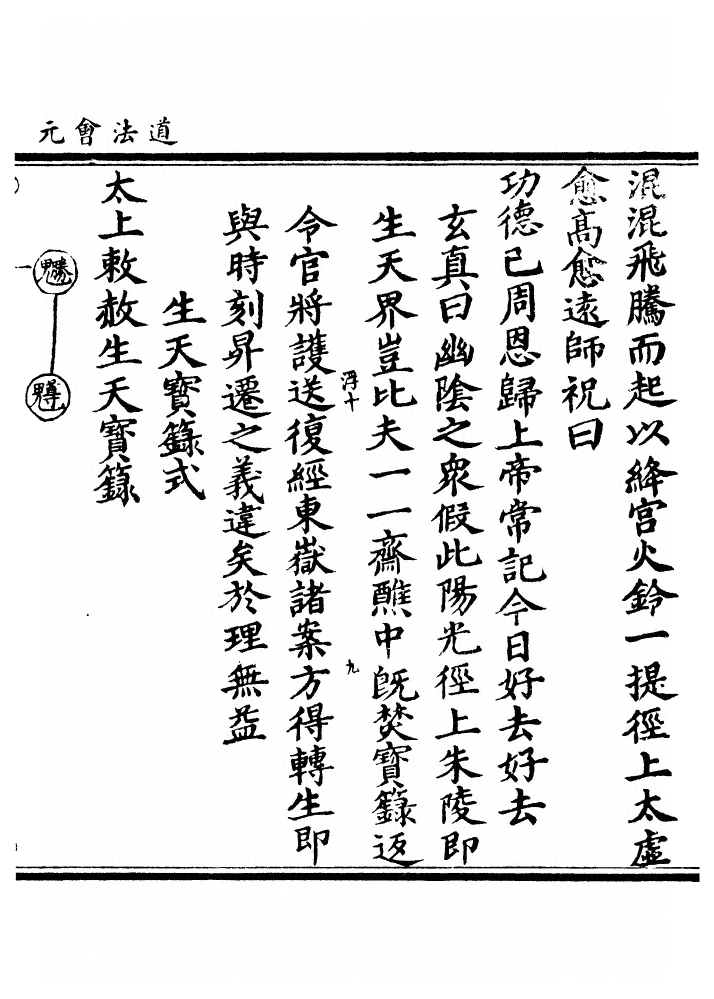 道法會元
混混飛騰而起以絳宮火鈴一提徑上太虛
愈高愈遠師祝曰
功德已周恩歸上帝常記今日好去好去
玄真曰幽陰之衆假此陽光徑上朱陵即
生天界豈比夫一一齋醮中既焚寶籙返
浮十
九
令官將護送復經東嶽諸案方得轉生即
與時刻昇遷之義違矣於理無益
生天寶籙式
太上敕赦生天寶籙